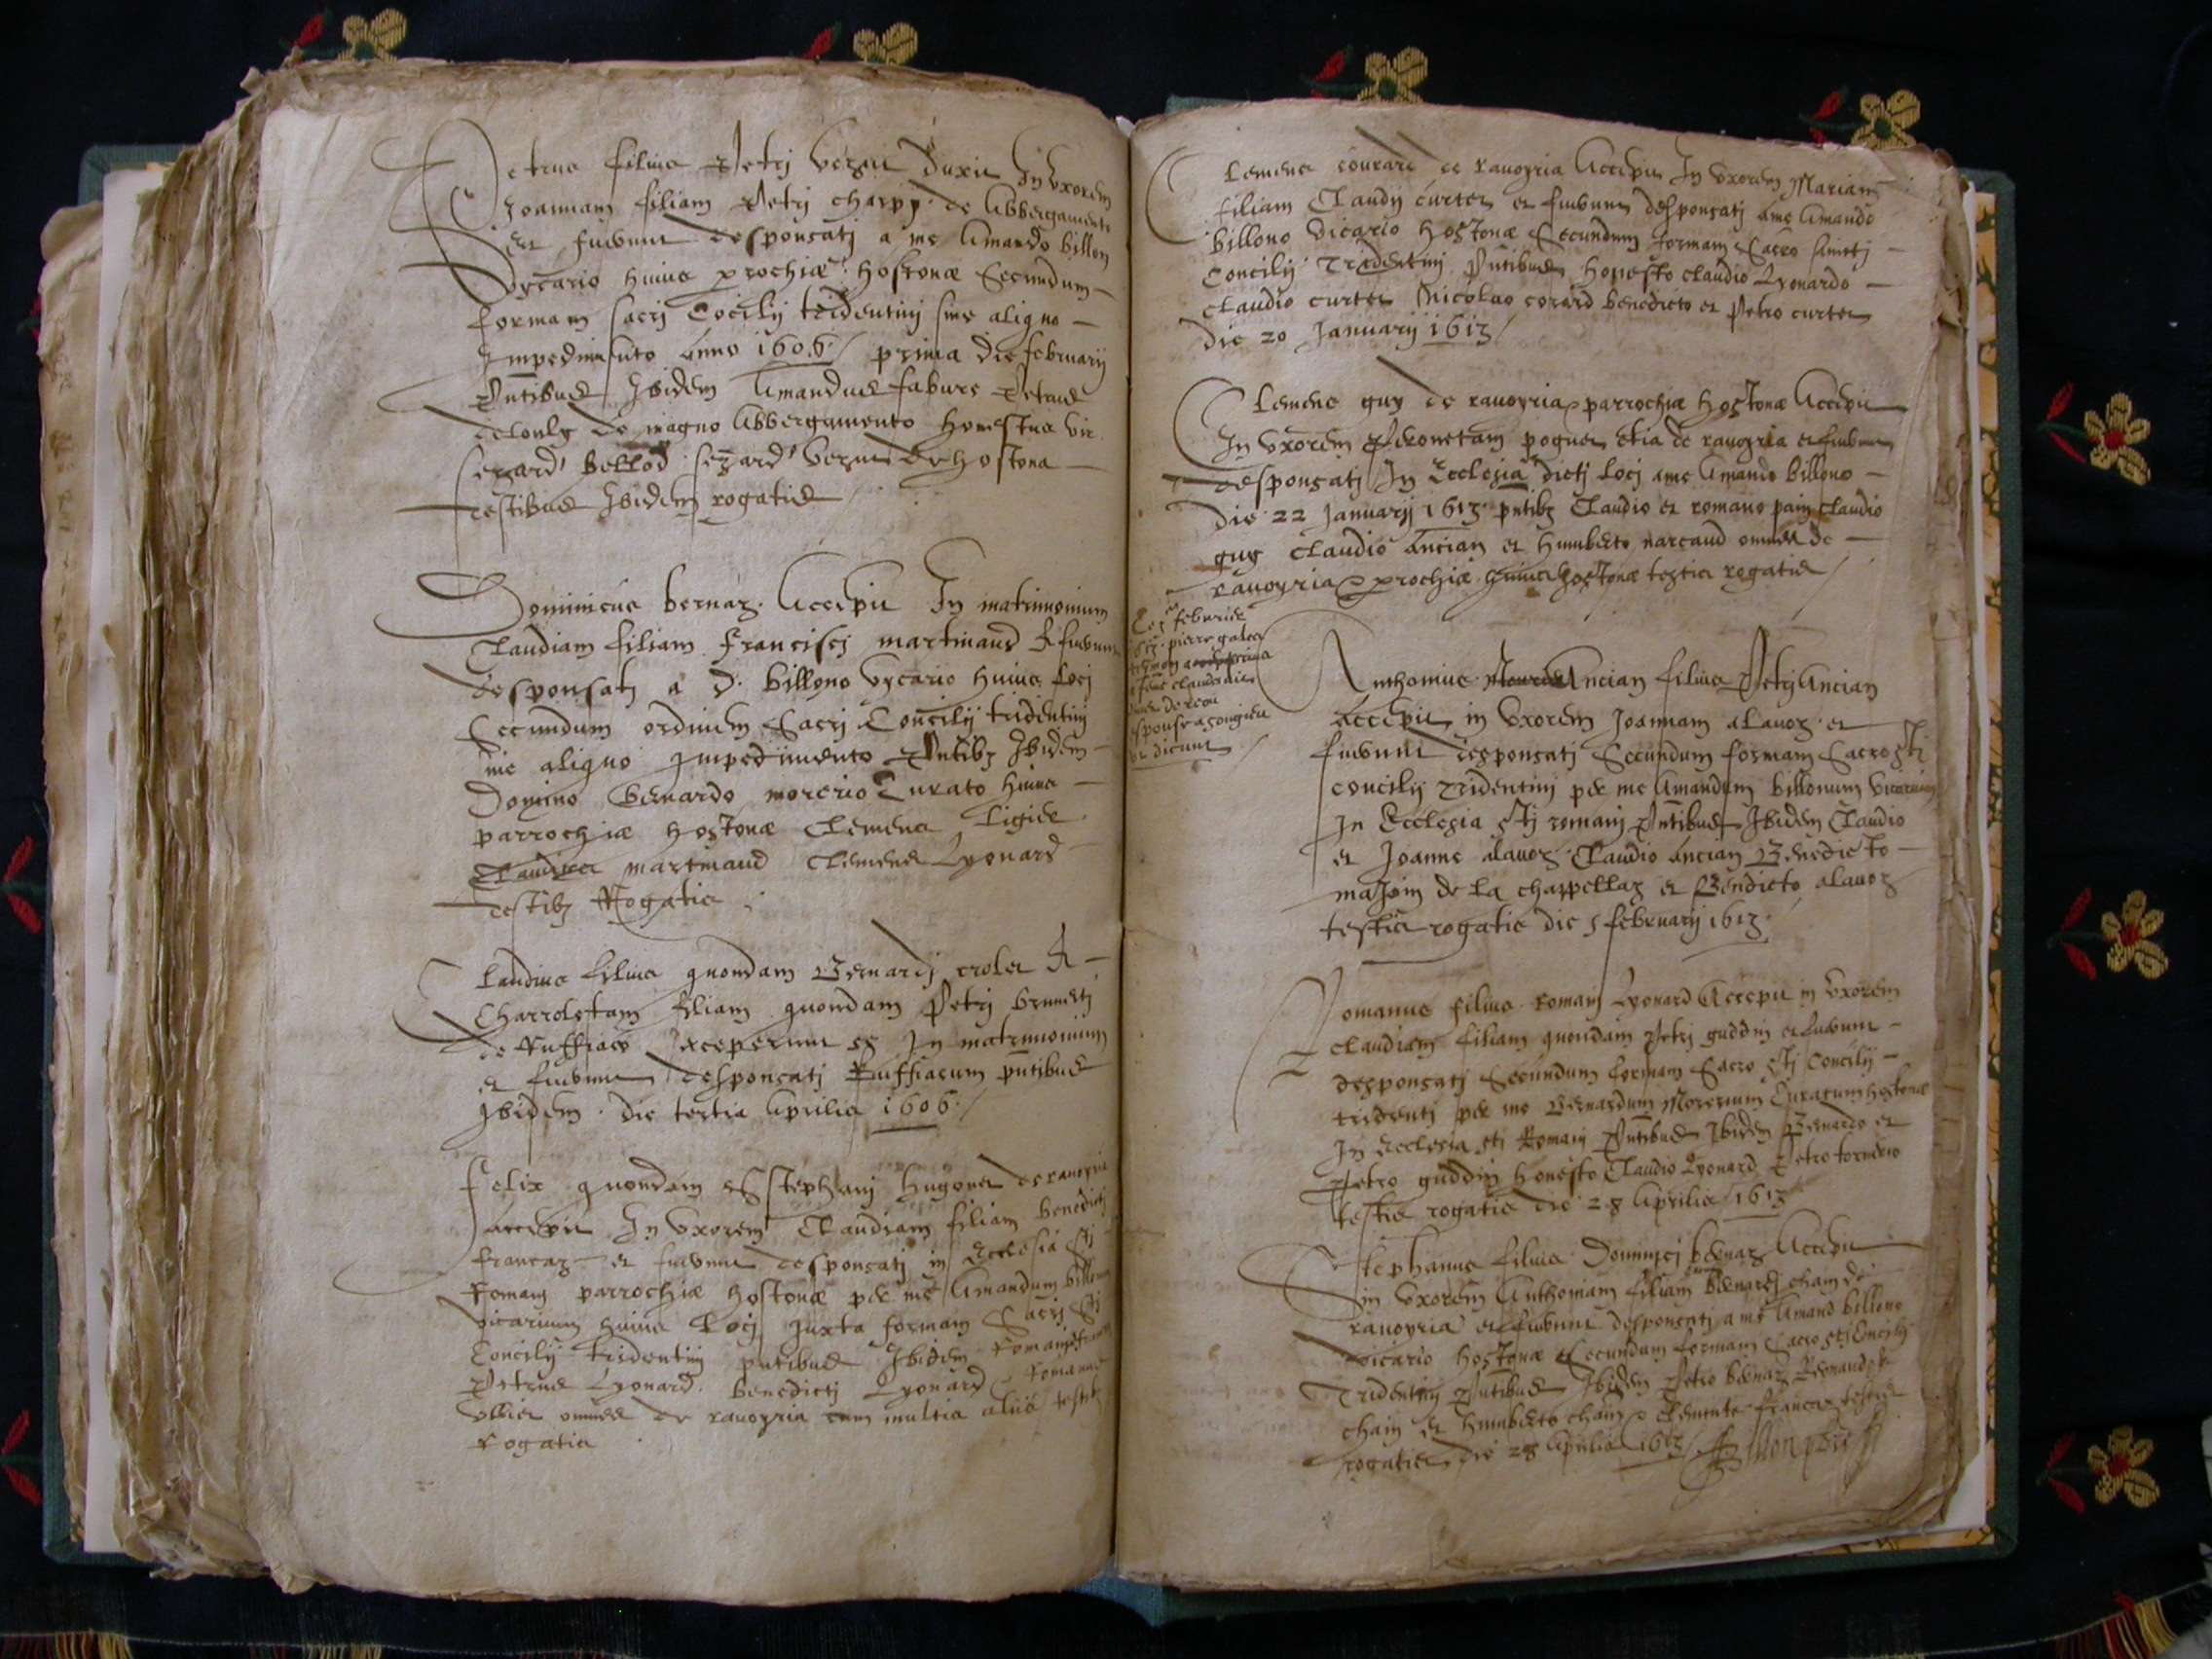 Petrus filius Petrj Vezut duxit In Vxorem
Joannam filiam Petrj charpy de Abbergamento
Et fuerunt desponsatj a me Amando billon
Vycario huius prochiæ hostonæ Secundum
formam sacrj Cocilij tridentinj sine aliquo
Impedimento Anno 1606 / prima die februarij
Pntibus Ibidem Amandus fabvre Petrus
de magno Abbergamento Honestus vir
sezard bellod sezard Vezut de hostona
testibus Ibidem rogatis
Dominicus bernaz Accepit In matrimonium
Claudiam filiam Franciscj martinaud Et fuerunt
desponsatj a D. billono Vycario huius Locj
Secundum ordinem Sacrj Concilij tridentinj
sine aliquo Impedimento Pntibz Ibidem
Domino Bernardo morerio Curato huius
parrochiæ hostonæ Clemens Ligier
martinaud Clemens Lyonard
testibz Rogatis
Claudius filius quondam Bernardj croler Et
Charroletam filiam quondam Petrj brunetj
de Ruffiaco In matrimonium
et fuerunt desponsatj Ruffiacum pntibus
Ibidem die tertia Aprilis 1606 /
Felix quondam Stephanj hugones de rauoyria
Accepit In Vxorem Claudiam filiam benedictj
francaz et fuerunt desponsatj in Ecclesia Stj
Romanj parrochiæ hostonæ per me Amandum billonum
Vicarium huius Locj Juxta formam Sacrj Stj
Concilij tridentinj pntibus Ibidem
Petrus Lyonard Benedictj Lyonard Romanus
omnes de rauoyria cum multis aliis testibz
Rogatis
Clemens courard de rauoyria Accepit In Vxorem Mariam
filiam Claudij curtet et fuerunt desponsatj a me Amando
billono Vicario hostonæ Secundum formam Sacro sanctj
Concilij Tridentinj Pntibus honesto claudio Lyonardo
claudio curtet Nicolao corard benedicto et Petro curtet
die 20 Januarij 1613 /
Clemens guy de rauoyria parrochiæ hostonæ Accepit
In Vxorem Peronetam poguet etia de rauoyria et fuerunt
desponsatj In Ecclesia dictj Locj a me Amando billono
die 22 Januarij 1613 pntibz Claudio et romano pain claudio
guy Claudio Ancian et humberto narcaud omnes de
rauoyria prochiæ huius hostonæ testis rogatis /
februier
pierre galer
ut dicunt /
Anthonius Ancian filius Petrj Ancian
Accepit in Vxorem Joannam alauoz et
fuerunt desponsatj Secundum formam Sacro stj
concilij Tridentinj per me Amandum billonum Vicarium
In Ecclesia Stj romanj Pntibus Ibidem Claudio
et Joanne alauoz Claudio Ancian Benedicto
de la chappellaz et Bendicto alauoz
testis rogatis die 5 februarij 1613
Romanus filius Romanj Lyonard Accepit in Vxorem
Claudiam filiam quondam Petrj guddin et fuerunt
desponsatj Secundum formam Sacro Stj Concilij
tridentj per me Bernardum Morerium Curatum hostonæ
In Ecclesia sti Romanj Pntibus Ibidem Bernardo et
Petro guddin honesto Claudio Lyonard Petro fornerio
testis rogatis die 28 Aprilis 1613
Stephanus filius Dominicj bernaz Accepit
in Vxorem Anthoniam filiam bernardj chain de
rauoyria et fuerunt desponsatj a me Amand billono
vicario hostonæ Secundum formam Sacro stj Concilij
Tridentinj Pntibus Ibidem Petro bernaz Bernardo
chain et humberto chain Clemente francaz testis
rogatis die 28 Aprilis 1613 /